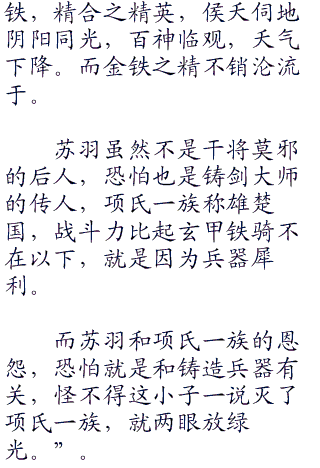 铁，精合之精英，侯天伺地
阴阳同光，百神临观，天气
下降。而金铁之精不销沦流
于。
苏羽虽然不是干将莫邪
的后人，恐怕也是铸剑大师
的传人，项氏一族称雄楚
国，战斗力比起玄甲铁骑不
在以下，就是因为兵器犀
利。
而苏羽和项氏一族的恩
怨，恐怕就是和铸造兵器有
关，怪不得这小子一说灭了
项氏一族，就两眼放绿
光。”。